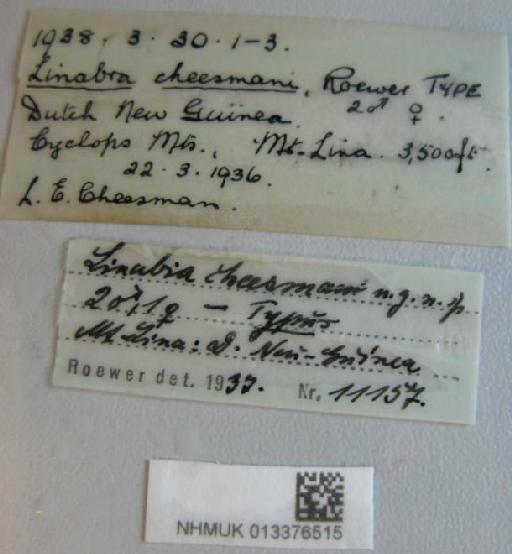 1938. 3. 30. 1-3.
Linabra cheesmani, Roewer TYPE
2♂ ♀.
Dutch New Guinea.
Cyclops Mts., Mt. Lina. 3,500ft.
22. 3. 1936.
L. E. Cheesman.
Linabia cheesmani n.g. n.sp
2♂, 1♀ — Typus
Mt. Lina: D. Neu-Guinea
Roewer det. 1937. Nr. 11157.
NHMUK 013376515